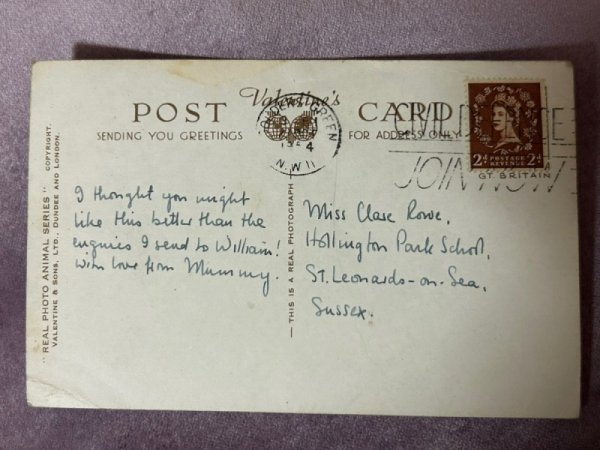 Valentine's
POST CARD
SENDING YOU GREETINGS
FOR ADDRESS ONLY
GREEN
4
N.W.11
JOIN NOW
2d POSTAGE REVENUE 2d
GT. BRITAIN
"REAL PHOTO ANIMAL SERIES" COPYRIGHT.
VALENTINE & SONS, LTD., DUNDEE AND LONDON.
I thought you might
like this better than the
engines I send to William!
with love from Mummy.
— THIS IS A REAL PHOTOGRAPH —
Miss Clare Rowe,
Hollington Park School,
St. Leonards-on-Sea,
Sussex.